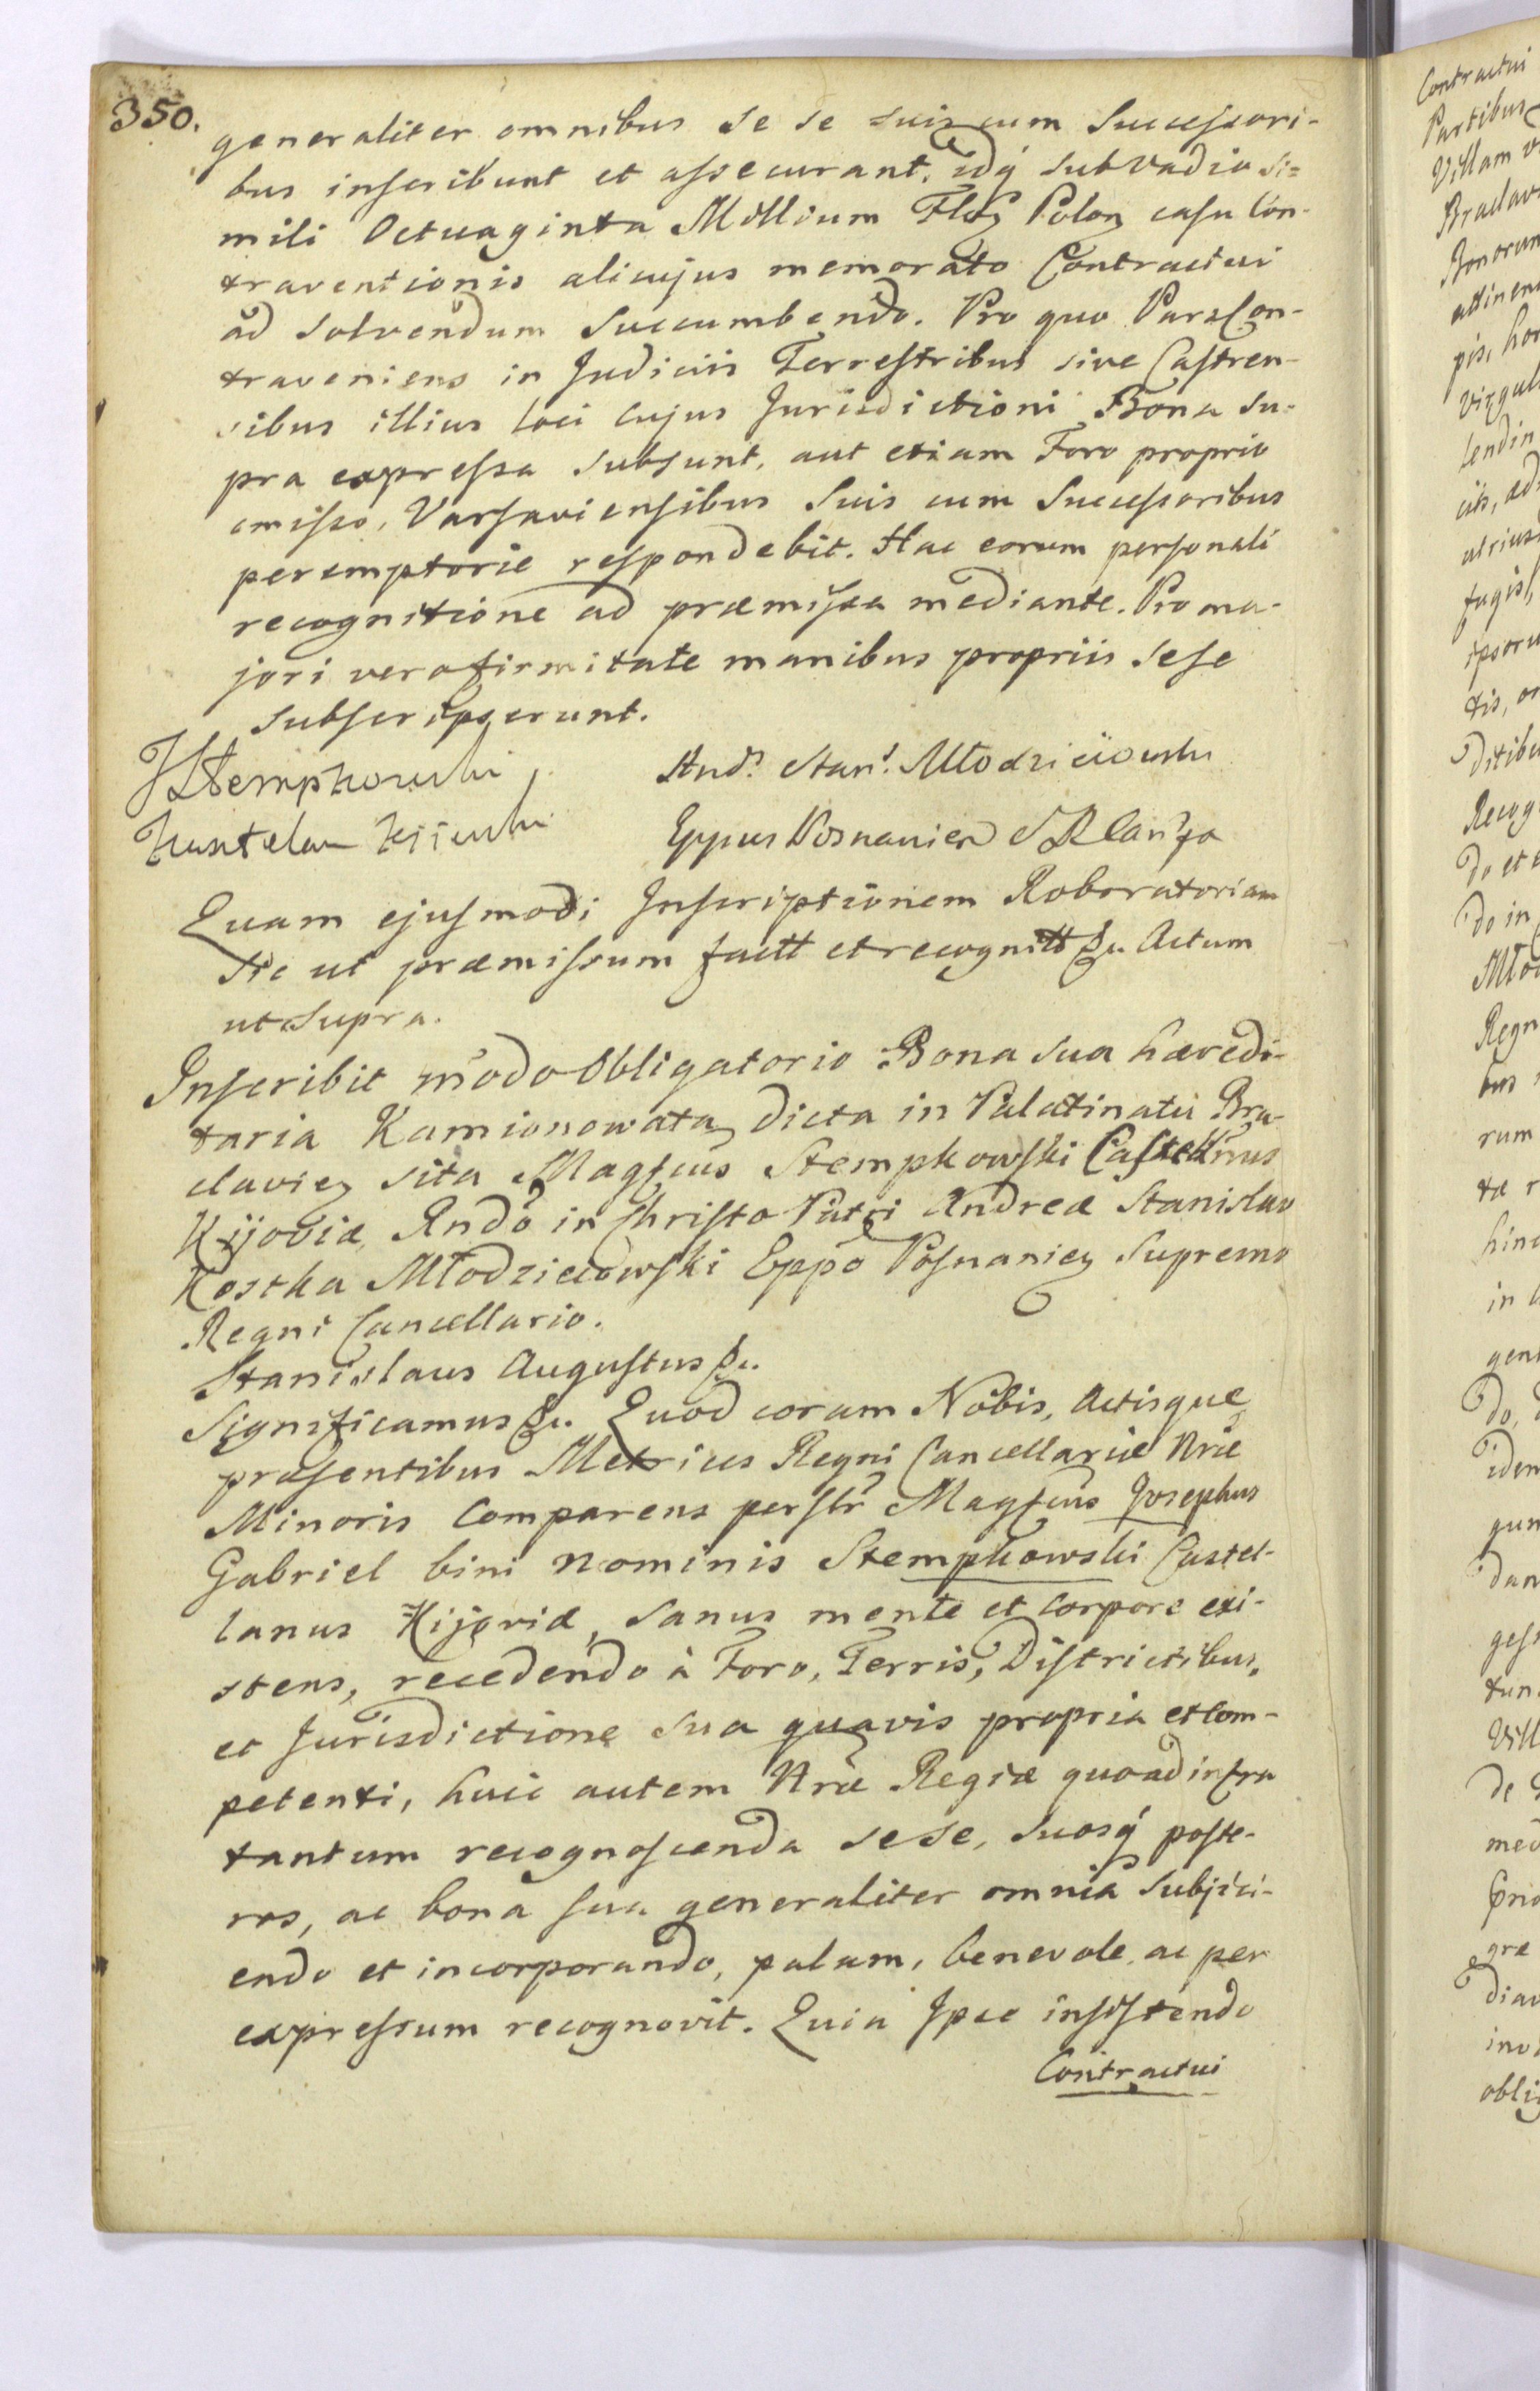 350.
generaliter omnibus se se suis cum Successori-
bus inscribunt et assecurant, idq́ sub vadio si=
mili Octuaginta Millium Flor Polon casu Con-
traventionis alicujus memorato Contractui
ad solvendum succumbendo. Pro quo Pars Con-
traveniens in Judiciis Terrestribus sive Castren-
sibus illius loci cujus Jurisdictioni Bona su-
pra expressa subsunt, aut etiam Foro proprio
omisso, Varsaviensibus suis cum Successoribus
peremptorie respondebit. Hac eorum personali
recognitione ad præmissa mediante. Pro ma-
jori vero firmitate manibus propriis sese
subscripserunt.
JStempkowski And. Stan. Młodzieiowski
Kasztelan Kijowski Eppus Posnanien S R Can
Quam ejusmodi Inscriptionem Roboratoriam
sic ut præmissum factt et recognitt &c. Actum
ut supra.
Inscribit modo obligatorio Bona sua hæredi-
taria Kamionowata dicta in Palatinatu Bra-
clavien sita Magfcus Stempkowski Castellnus
Kijoviæ, Rndo in Christo Patri Andreæ Stanislao
Kostka Młodzieiowski Eppo Posnanien Supremo
Regni Cancellario.
Stanislaus Augustus &c.
Significamus &c. Quod coram Nobis, Actisque
præsentibus Metrices Regni Cancellariæ Nræ
Minoris Comparens perslr Magfcus Josephus
Gabriel bini nominis Stempkowski Castel-
lanus Kijoviæ, sanus mente et corpore exi-
stens, recedendo à Foro, Terris, Districtibus,
et Jurisdictione sua quavis propria et com-
petenti, huic autem Nræ Regiæ quoad infra
tantum recognoscenda sese, suosq́ poste-
ros, ac bona sua generaliter omnia subjici-
endo et incorporando, palam, benevole ac per
expressum recognovit. Quia Ipse insistendo
Contractui
Contractui
Partibus
Villam
Bonorum
pis,
Recog
do et
do in
Regn
rum
in
do,
Vill
de